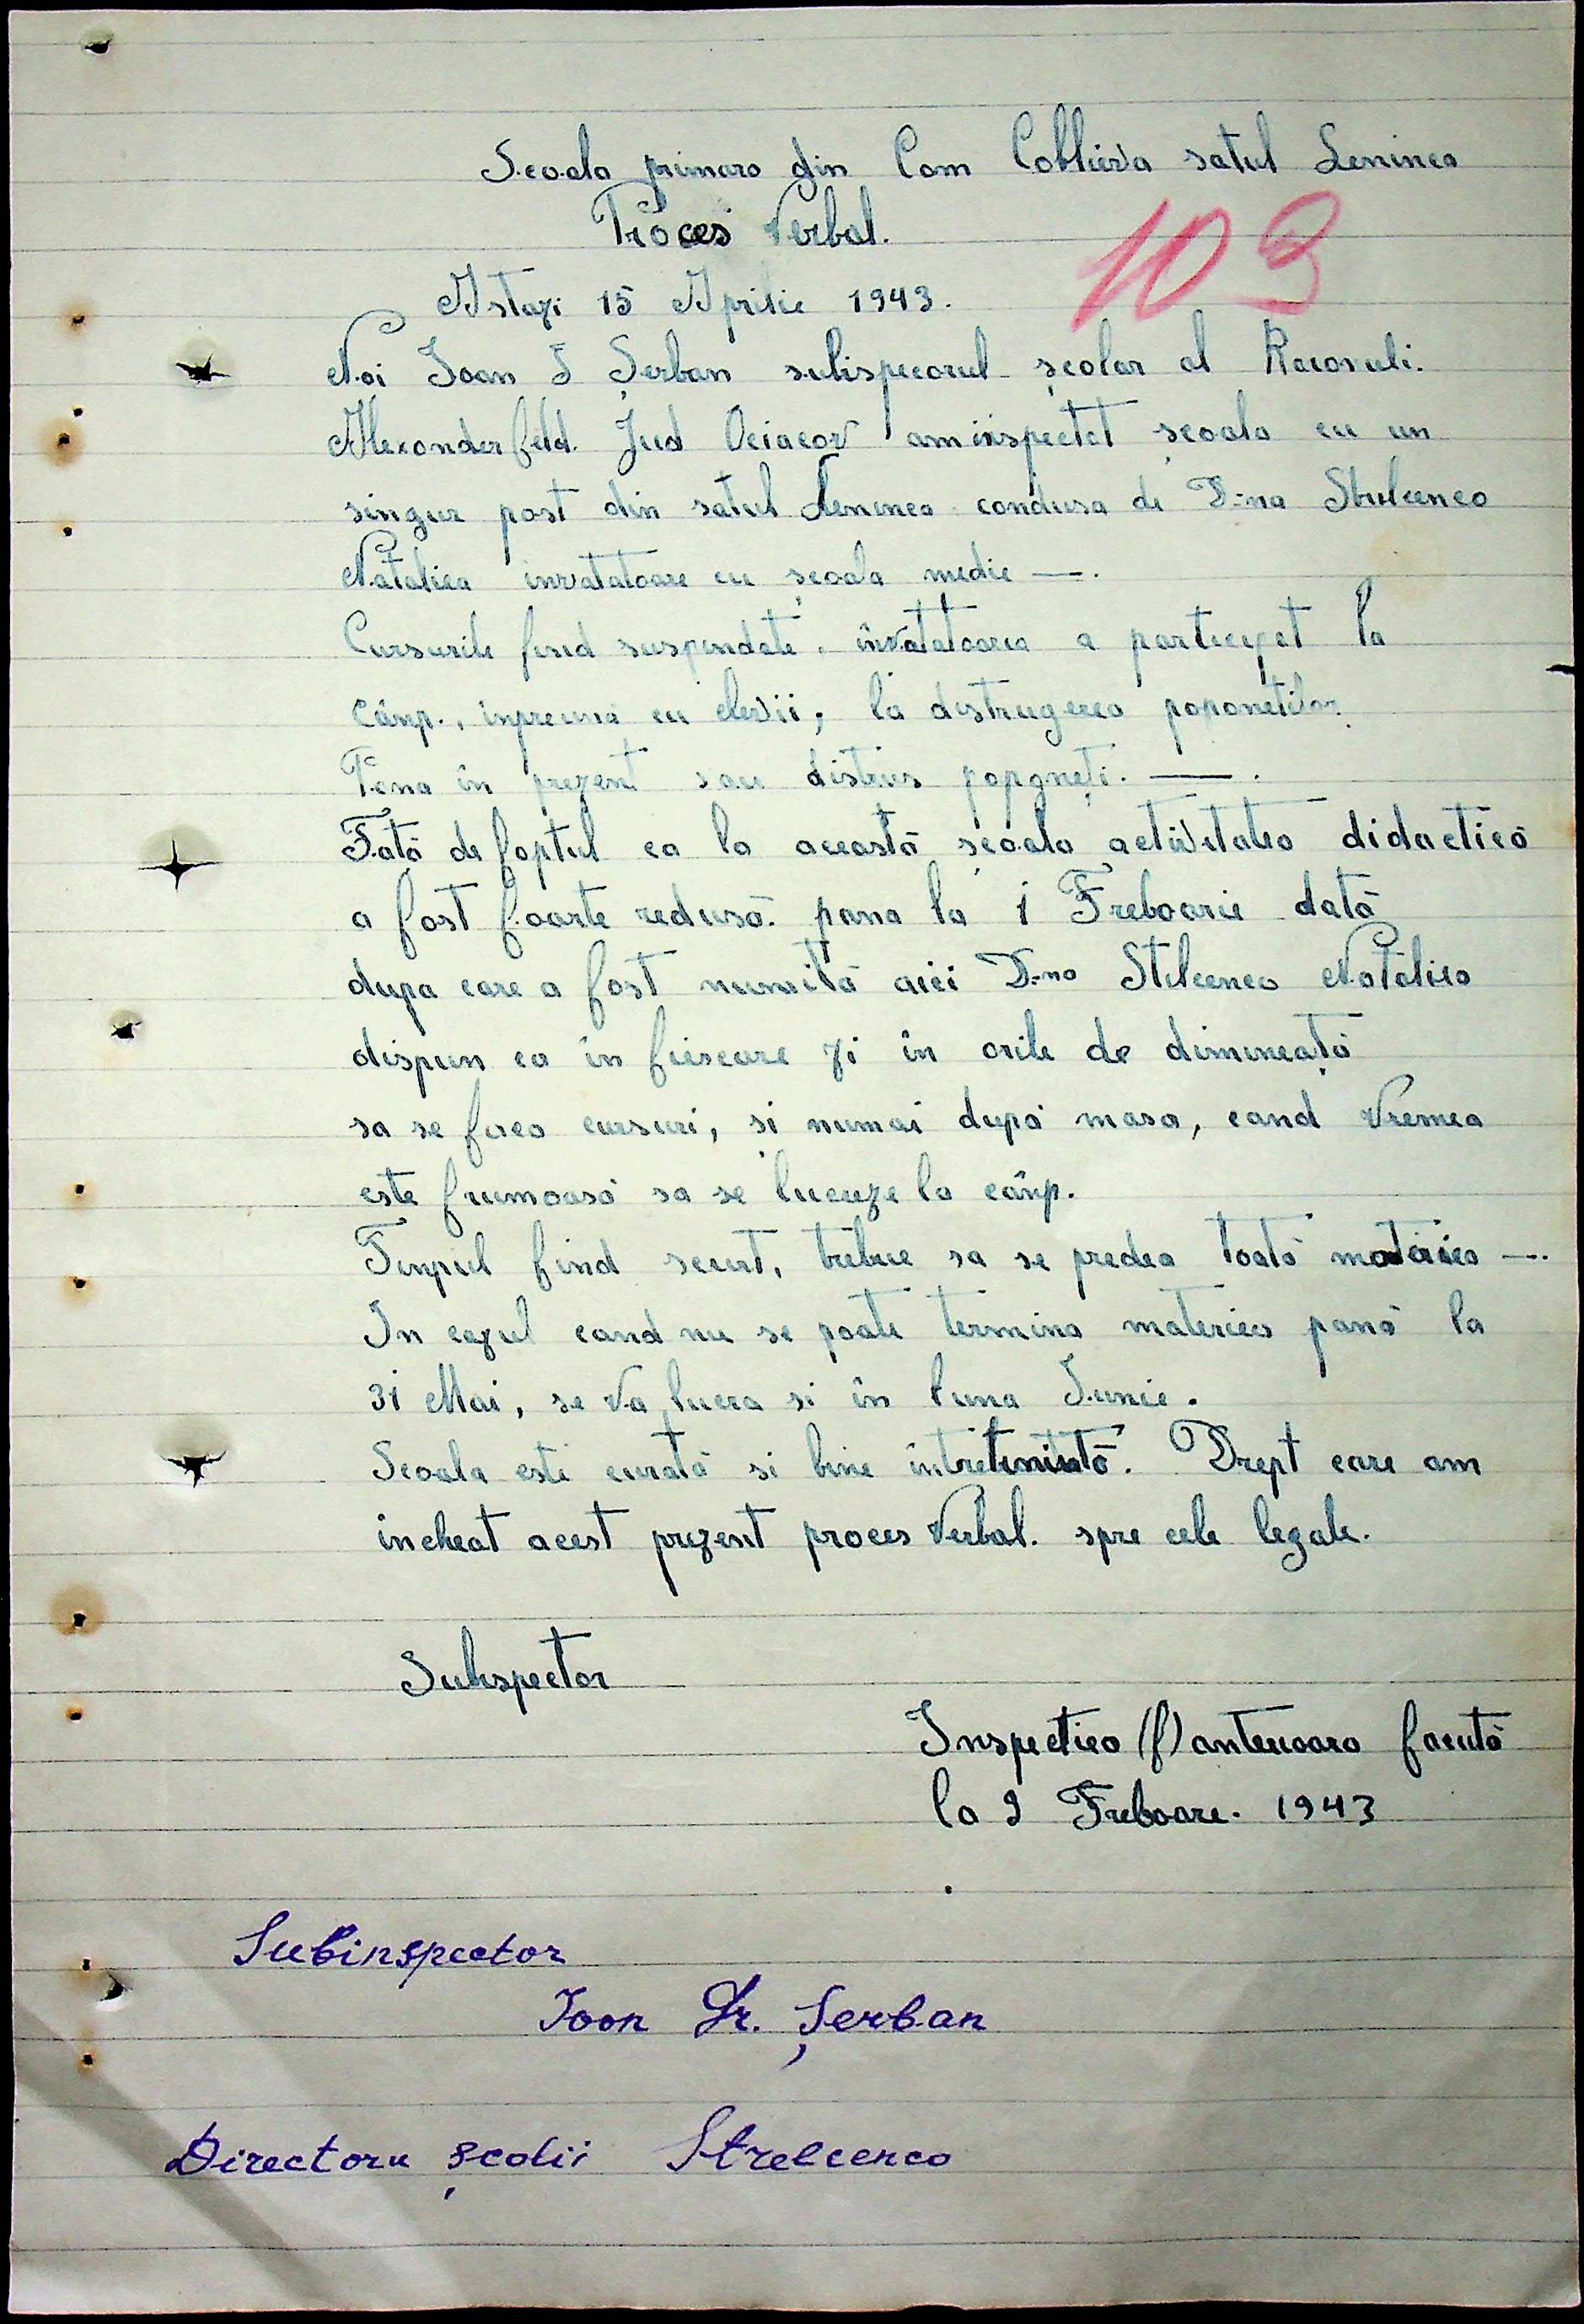 Scoala primara din Com Coblieva satul Leninca
Proces Verbal.
103
Astazi 15 Aprilie 1943.
Noi Ioan I Șerban subispecorul școlar al Raconuli.
Alexanderfild. Jud Ociacov am inspectat școala cu un
singur post din satul Leninca condusa de D-na Strilcenco
Natalica invatatoare cu școala medie —.
Cursurile find suspendate, învătatoarea a participat la
cânp., inpreuna cu elevii, la distrugerea poponetilor
Pena în prezent sau distrus popgneți. —.
Fată de faptul ca la această școala activitatea didactică
a fost foarte redusă. pana la 1 Freboarie dată
dupa care a fost numită aici D-na Stilcenco Natalica
dispun ca în fiiscare zi în orile de dimineață
sa se faca cursuri, și numai după masa, cand Vremea
este frumoasă sa se lucuze la cânp.
Tinpul find scurt, trebue sa se predea toată materiea —.
In cazul cand nu se poate termina materiea pană la
31 Mai, se va lucra si în luna Iunie.
Scoala este curată si bine intretinută. Drept care am
incheat acest prezent proces Verbal. spre cele legale.
Subispector
Inspectiea (f) anterioara facută
la 2 Freboare. 1943
Subinspector
Ioon Gr. Șerban
Directoru școlii Strelcenco